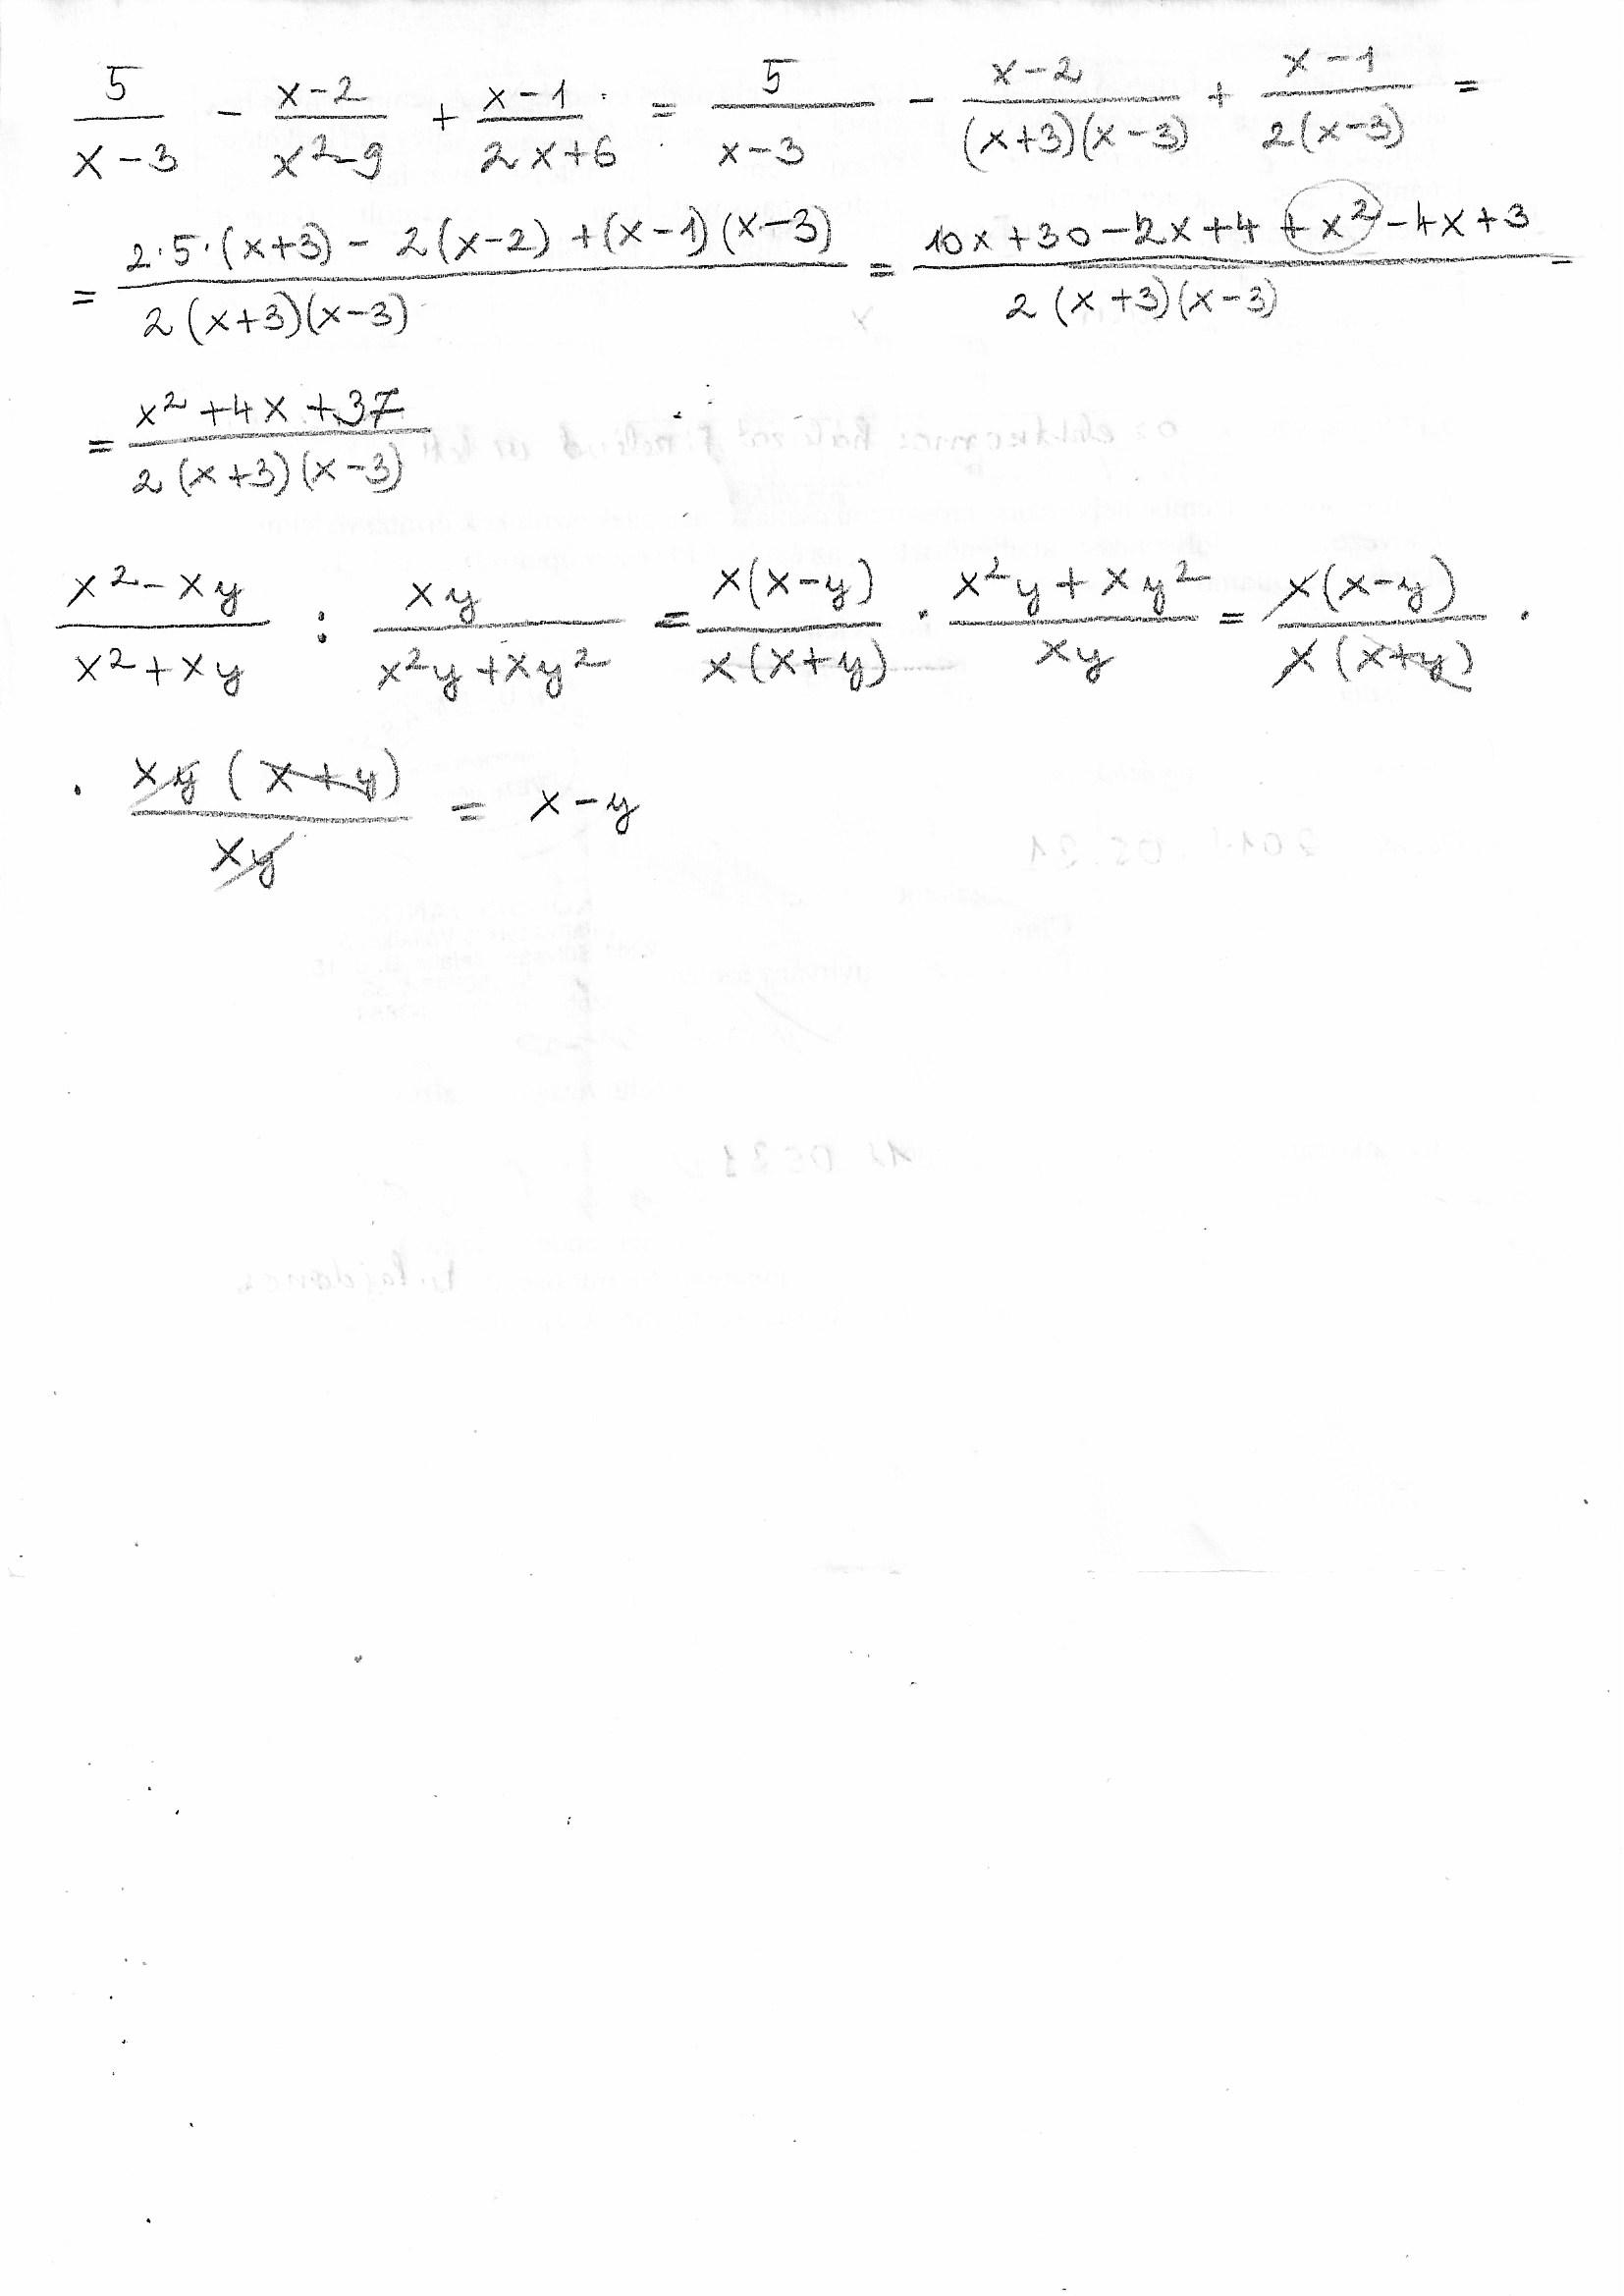 5/(x-3) - (x-2)/(x²-9) + (x-1)/(2x+6) = 5/(x-3) - (x-2)/((x+3)(x-3)) + (x-1)/(2(x-3)) =
= (2·5·(x+3) - 2(x-2) + (x-1)(x-3))/(2(x+3)(x-3)) = (10x+30-2x+4+x²-4x+3)/(2(x+3)(x-3)) =
= (x²+4x+37)/(2(x+3)(x-3))
(x²-xy)/(x²+xy) : xy/(x²y+xy²) = x(x-y)/(x(x+y)) · (x²y+xy²)/xy = x(x-y)/(x(x+y)) ·
· xy(x+y)/xy = x-y